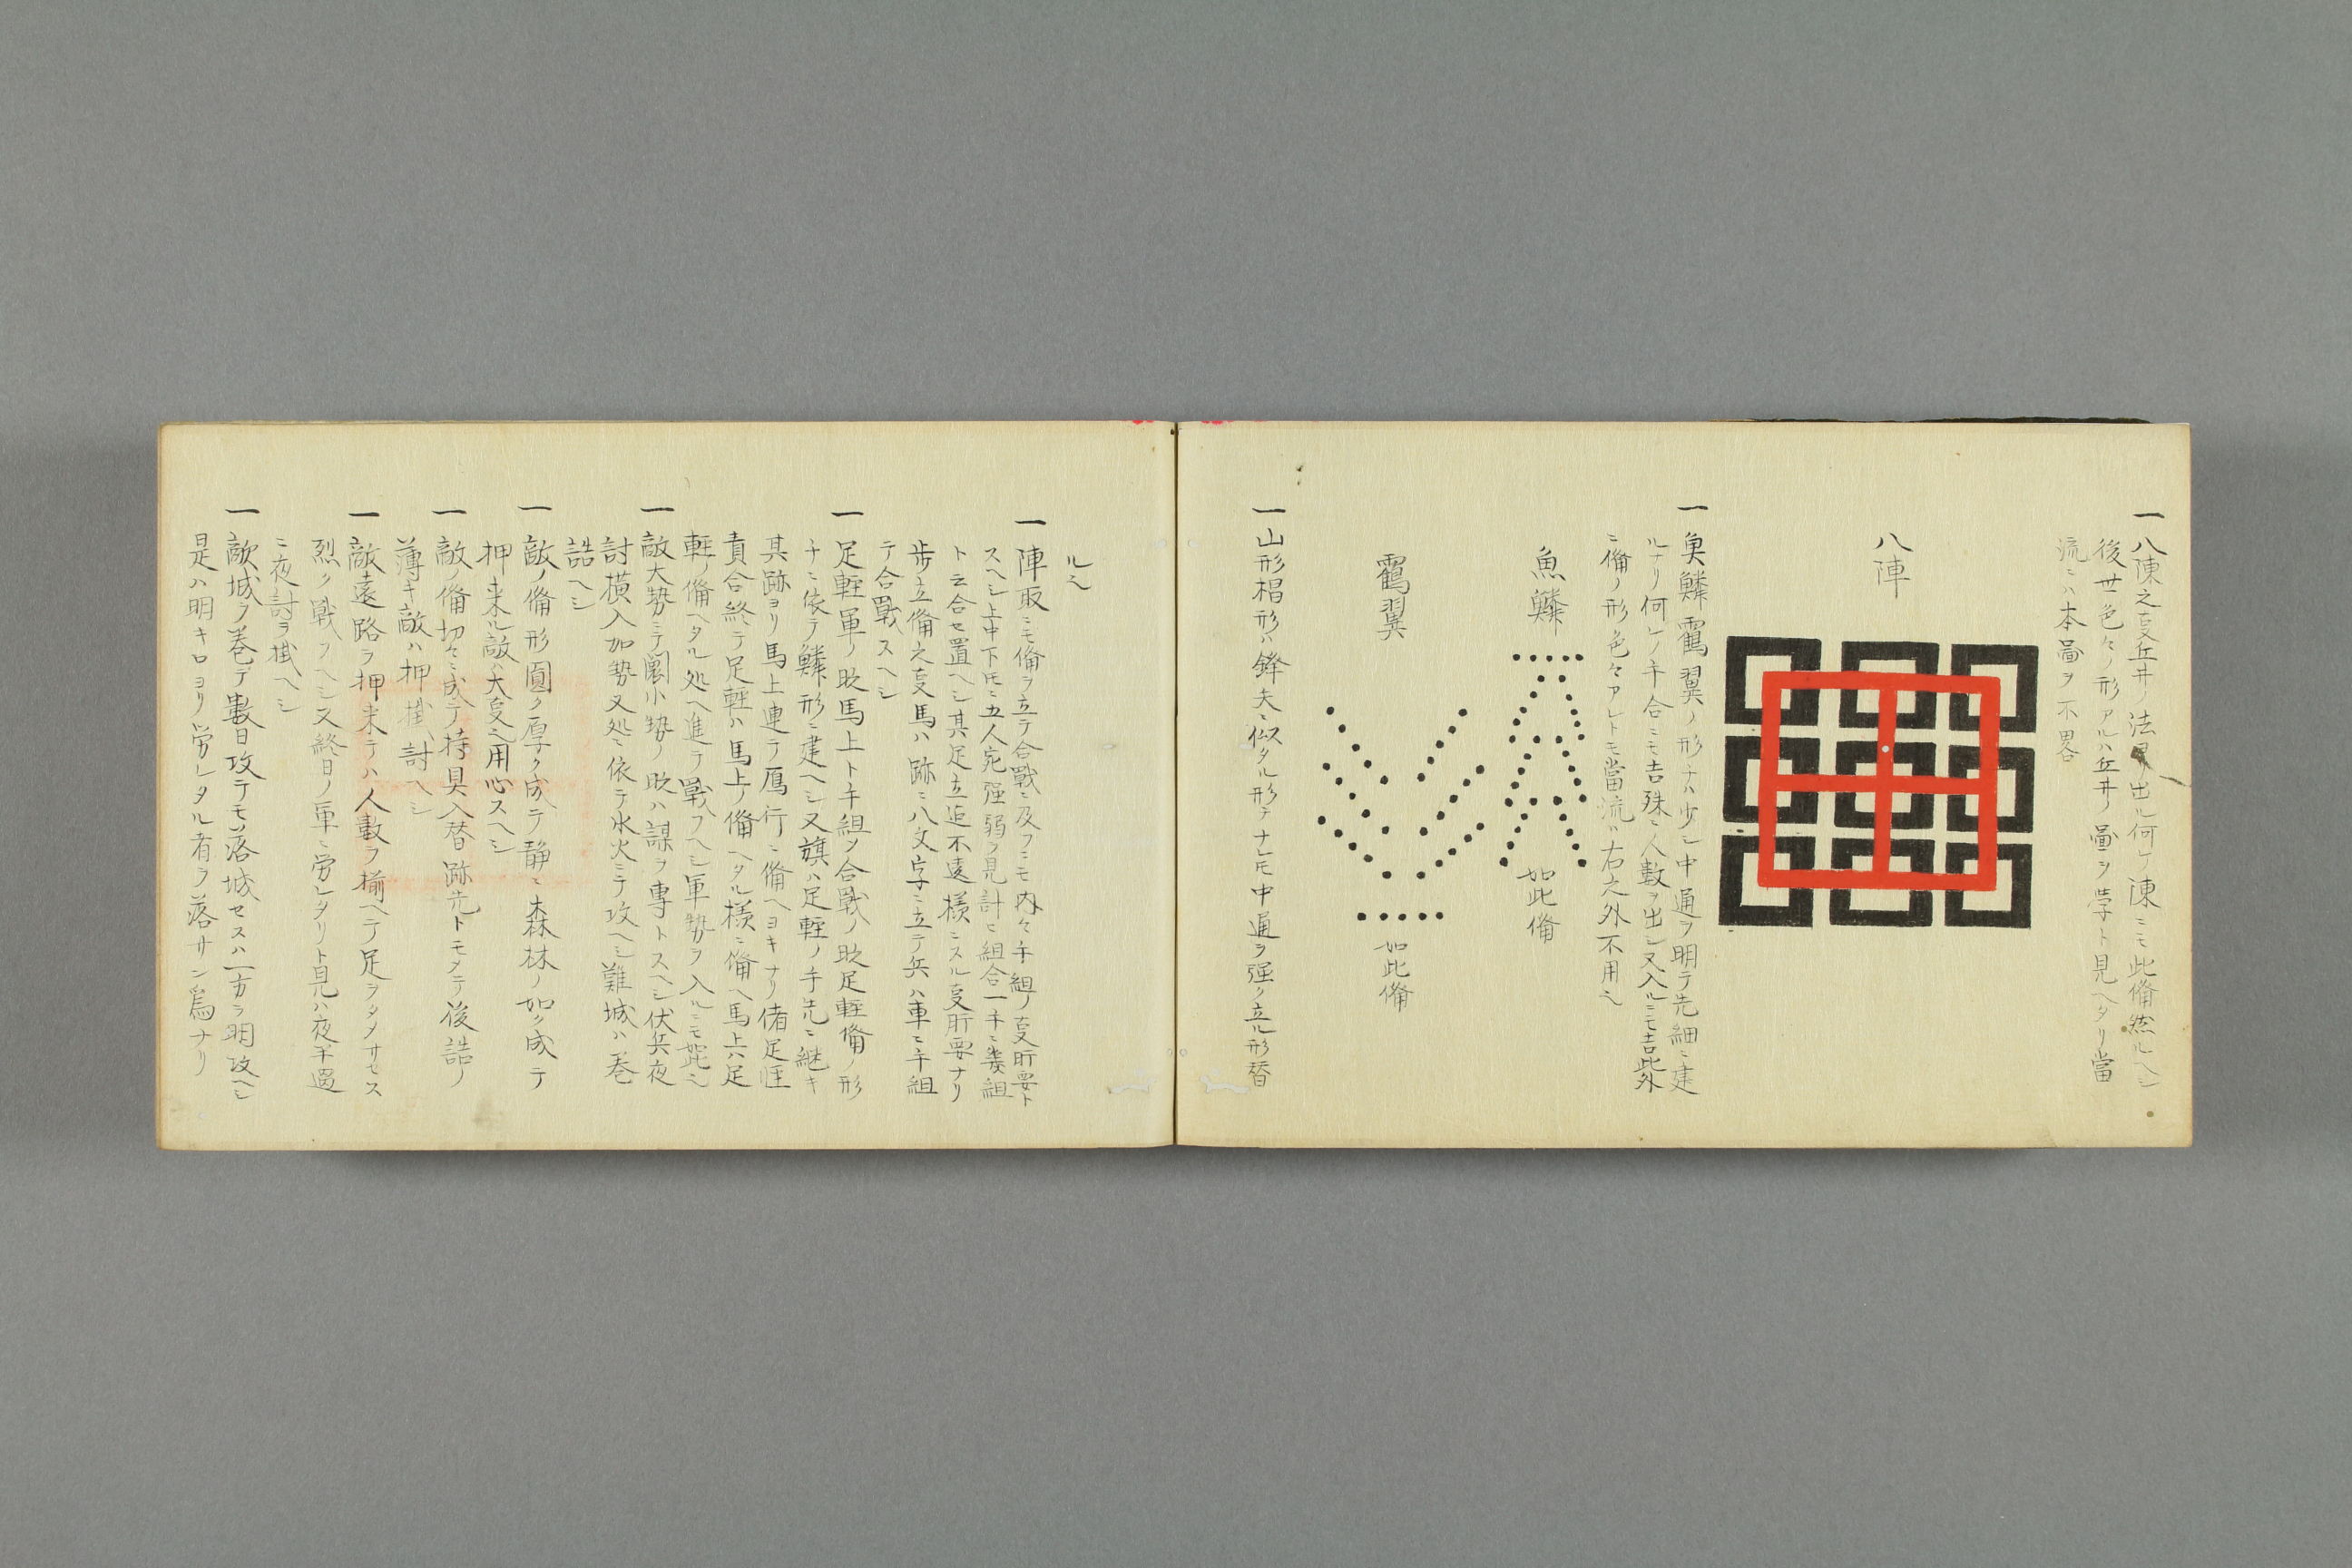 一八陳之叓丘井ノ法ヨリ出ル何レノ陳ニモ此備然ルヘシ
後世色々ノ形アルハ丘井ノ啚ヲ学ト見ヘタリ當
流ニハ本啚ヲ不畧
八陣
一魚鱗靏翼ノ形ナハ少シ中通ヲ明テ先細ニ建
ルナリ何レノ手合ニモ吉殊ニ人數ヲ出シ又入ルニモ吉此外
ニ備ノ形色々アレトモ當流ハ右之外不用之
魚鱗
如此備
靏翼
如此備
一山形椙形ハ鋒矢ニ似タル形チナレ𪜈中通ヲ强ク立ル形替
ル之
一陣取ニモ備ヲ立テ合戰ニ及フニモ内々手組ノ叓肝要ト
スヘシ上中下𪜈ニ五人宛强弱ヲ見計ヒ組合一手ニ幾組
ト云合セ置ヘシ其足立近不遠様ニスル叓肝要ナリ
歩立備之叓馬ハ跡ニ八文字ニ立テ兵ハ車ニ手組
テ合戰スヘシ
一足輕軍ノ時馬上ト手組ヲ合戰ノ時足輕備ノ形
チニ依テ鱗形ニ建ヘシ又旗ハ足輕ノ手先ニ継キ
其跡ヨリ馬上連テ鴈行ニ備ヘヨキナリ偖足輕
責合終テ足輕ハ馬上ノ備ヘタル様ニ備ヘ馬上ハ足
輕ノ備ヘタル処ヘ進テ戰フヘシ軍勢ヲ入ルニモ如此之
一敵大勢ニテ圍小勢ノ時ハ謀ヲ專トスヘシ伏兵夜
討横入加勢又処ニ依テ水火ニテ攻ヘシ難城ハ巻
詰ヘシ
一敵ノ備形圓ク厚ク成テ静ニ森林ノ如ク成テ
押来ル敵ハ大叓之用心スヘシ
一敵ノ備切々ニ成テ持具入替跡先トモメテ後詰ノ
薄キ敵ハ押掛討ヘシ
一敵遠路ヲ押来テハ人數ヲ揃ヘテ足ヲタメサセス
烈ク戰フヘシ又終日ノ軍ニ労レタリト見ハ夜半過
ニ夜討ヲ掛ヘシ
一敵城ヲ巻テ數日攻テモ落城セスハ一方ヲ明攻ヘシ
是ハ明キ口ヨリ労レタル者ヲ落サン爲ナリ